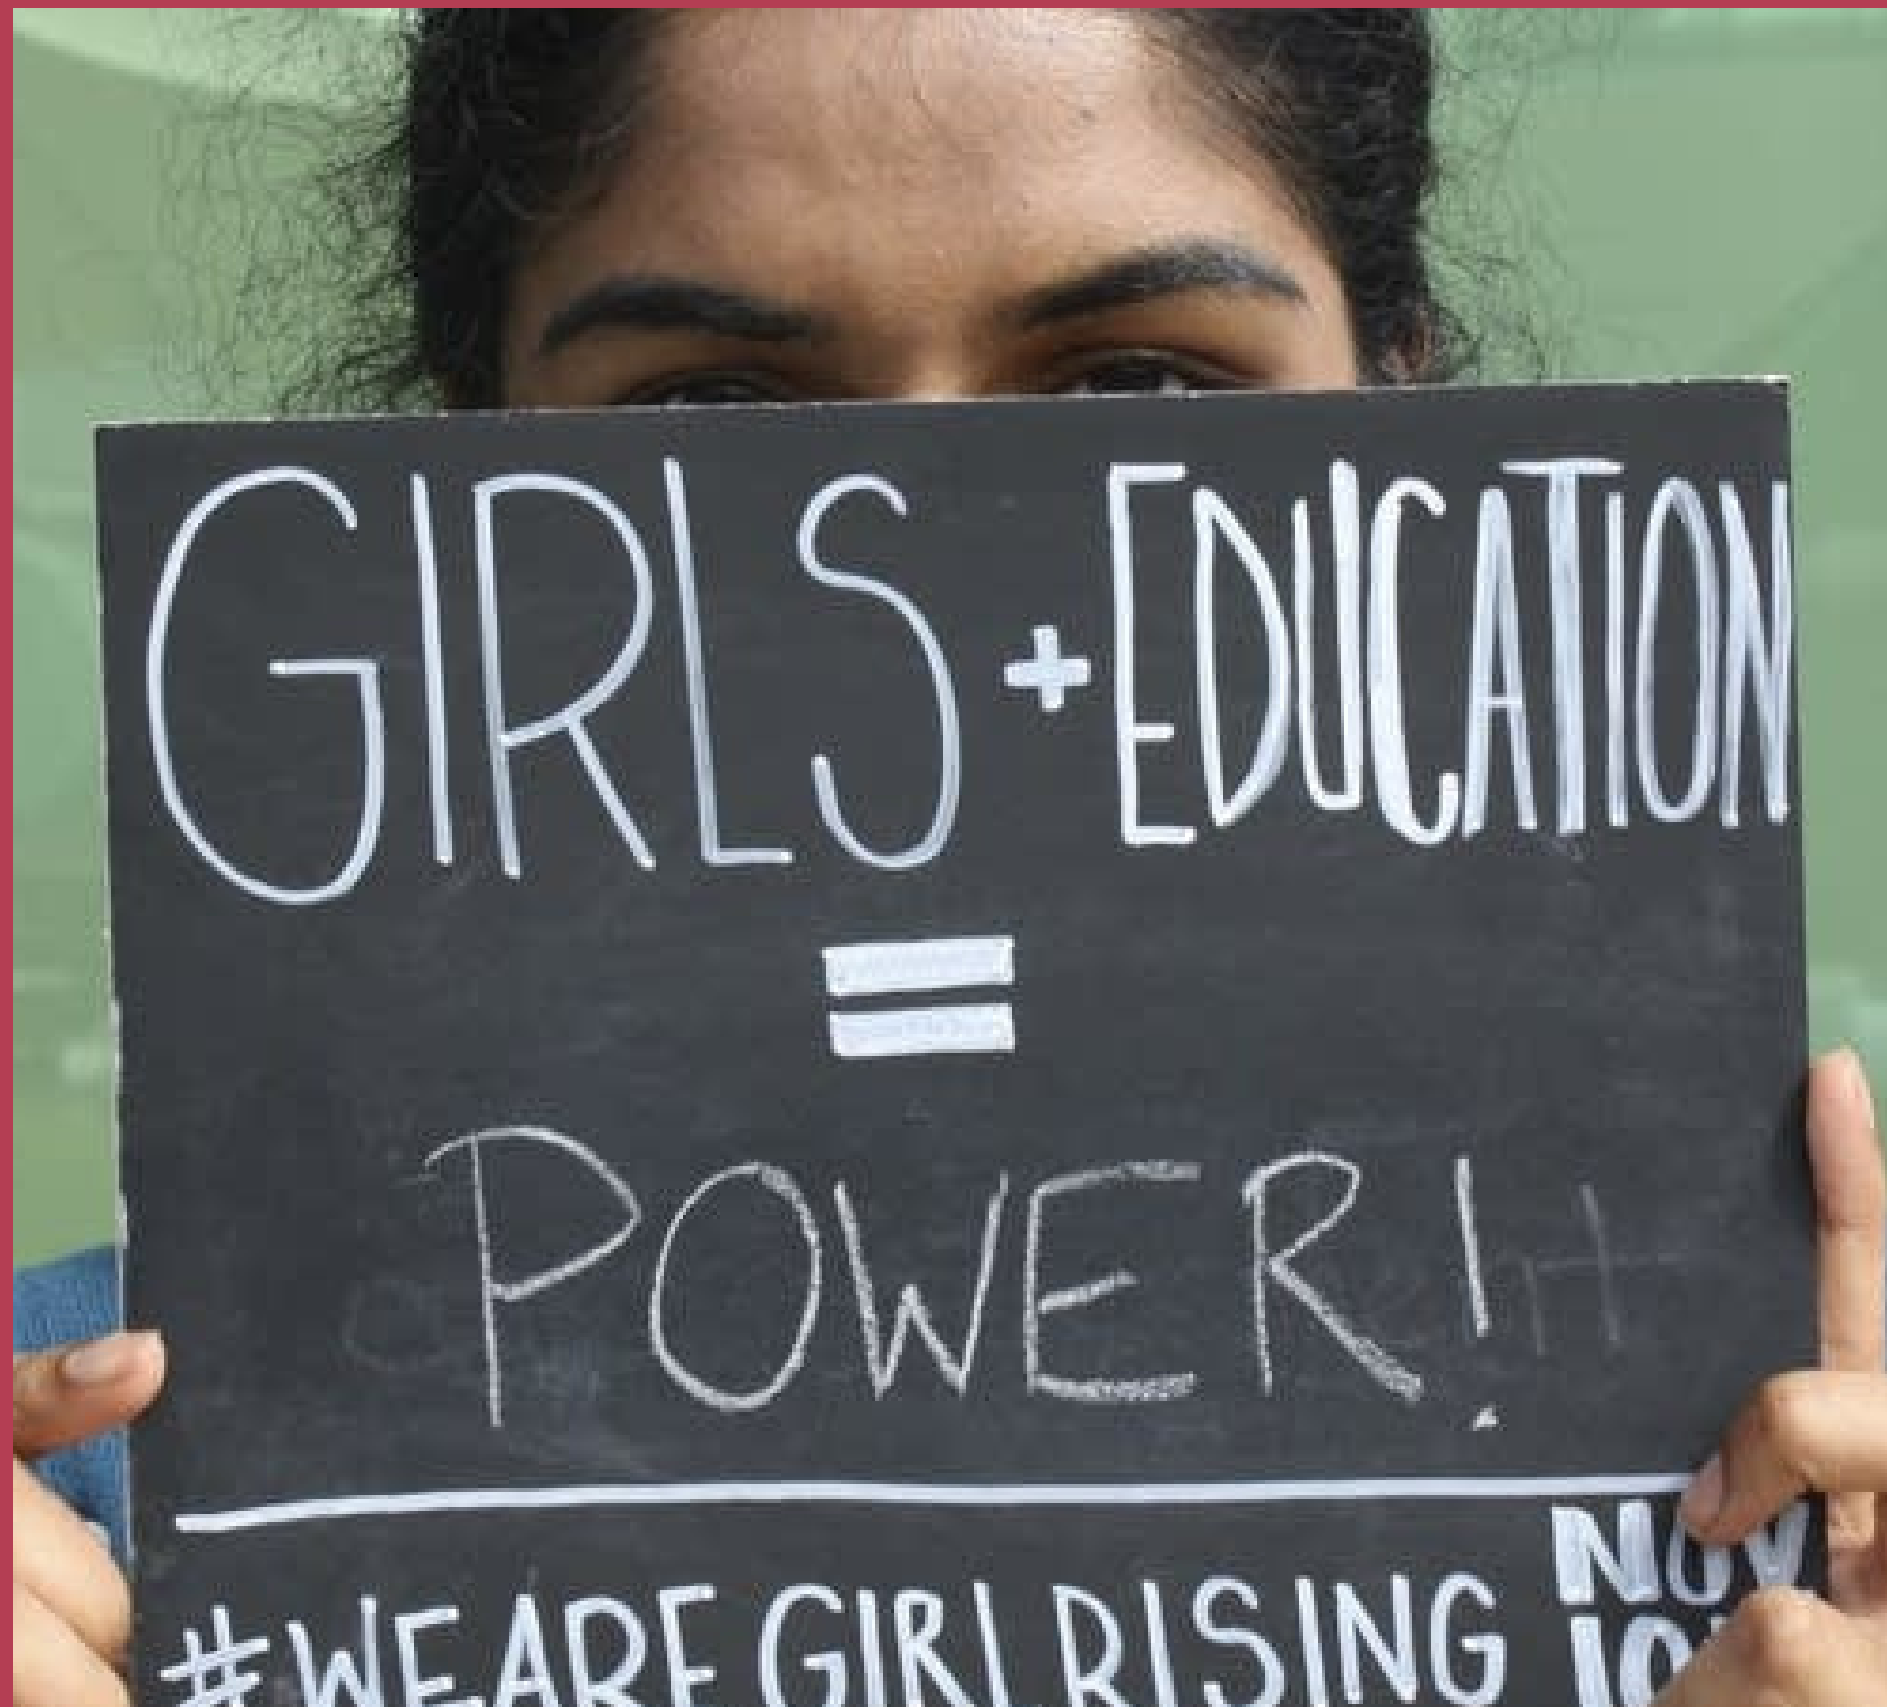 GIRLS + EDUCATION
=
POWER!
#WEAREGIRLRISING
NOV